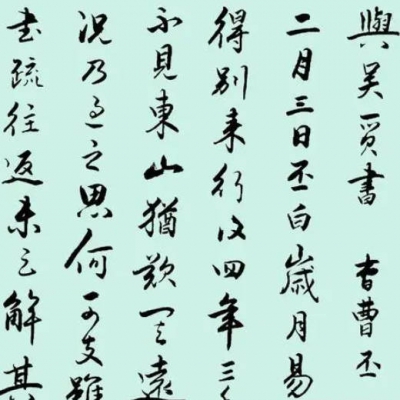 與吴質書 曹丕
二月三日丕白歲月易
得别来行復四年三
不見東山猶歎其遠
況乃過之思何可支雖
書疏往返未足解其